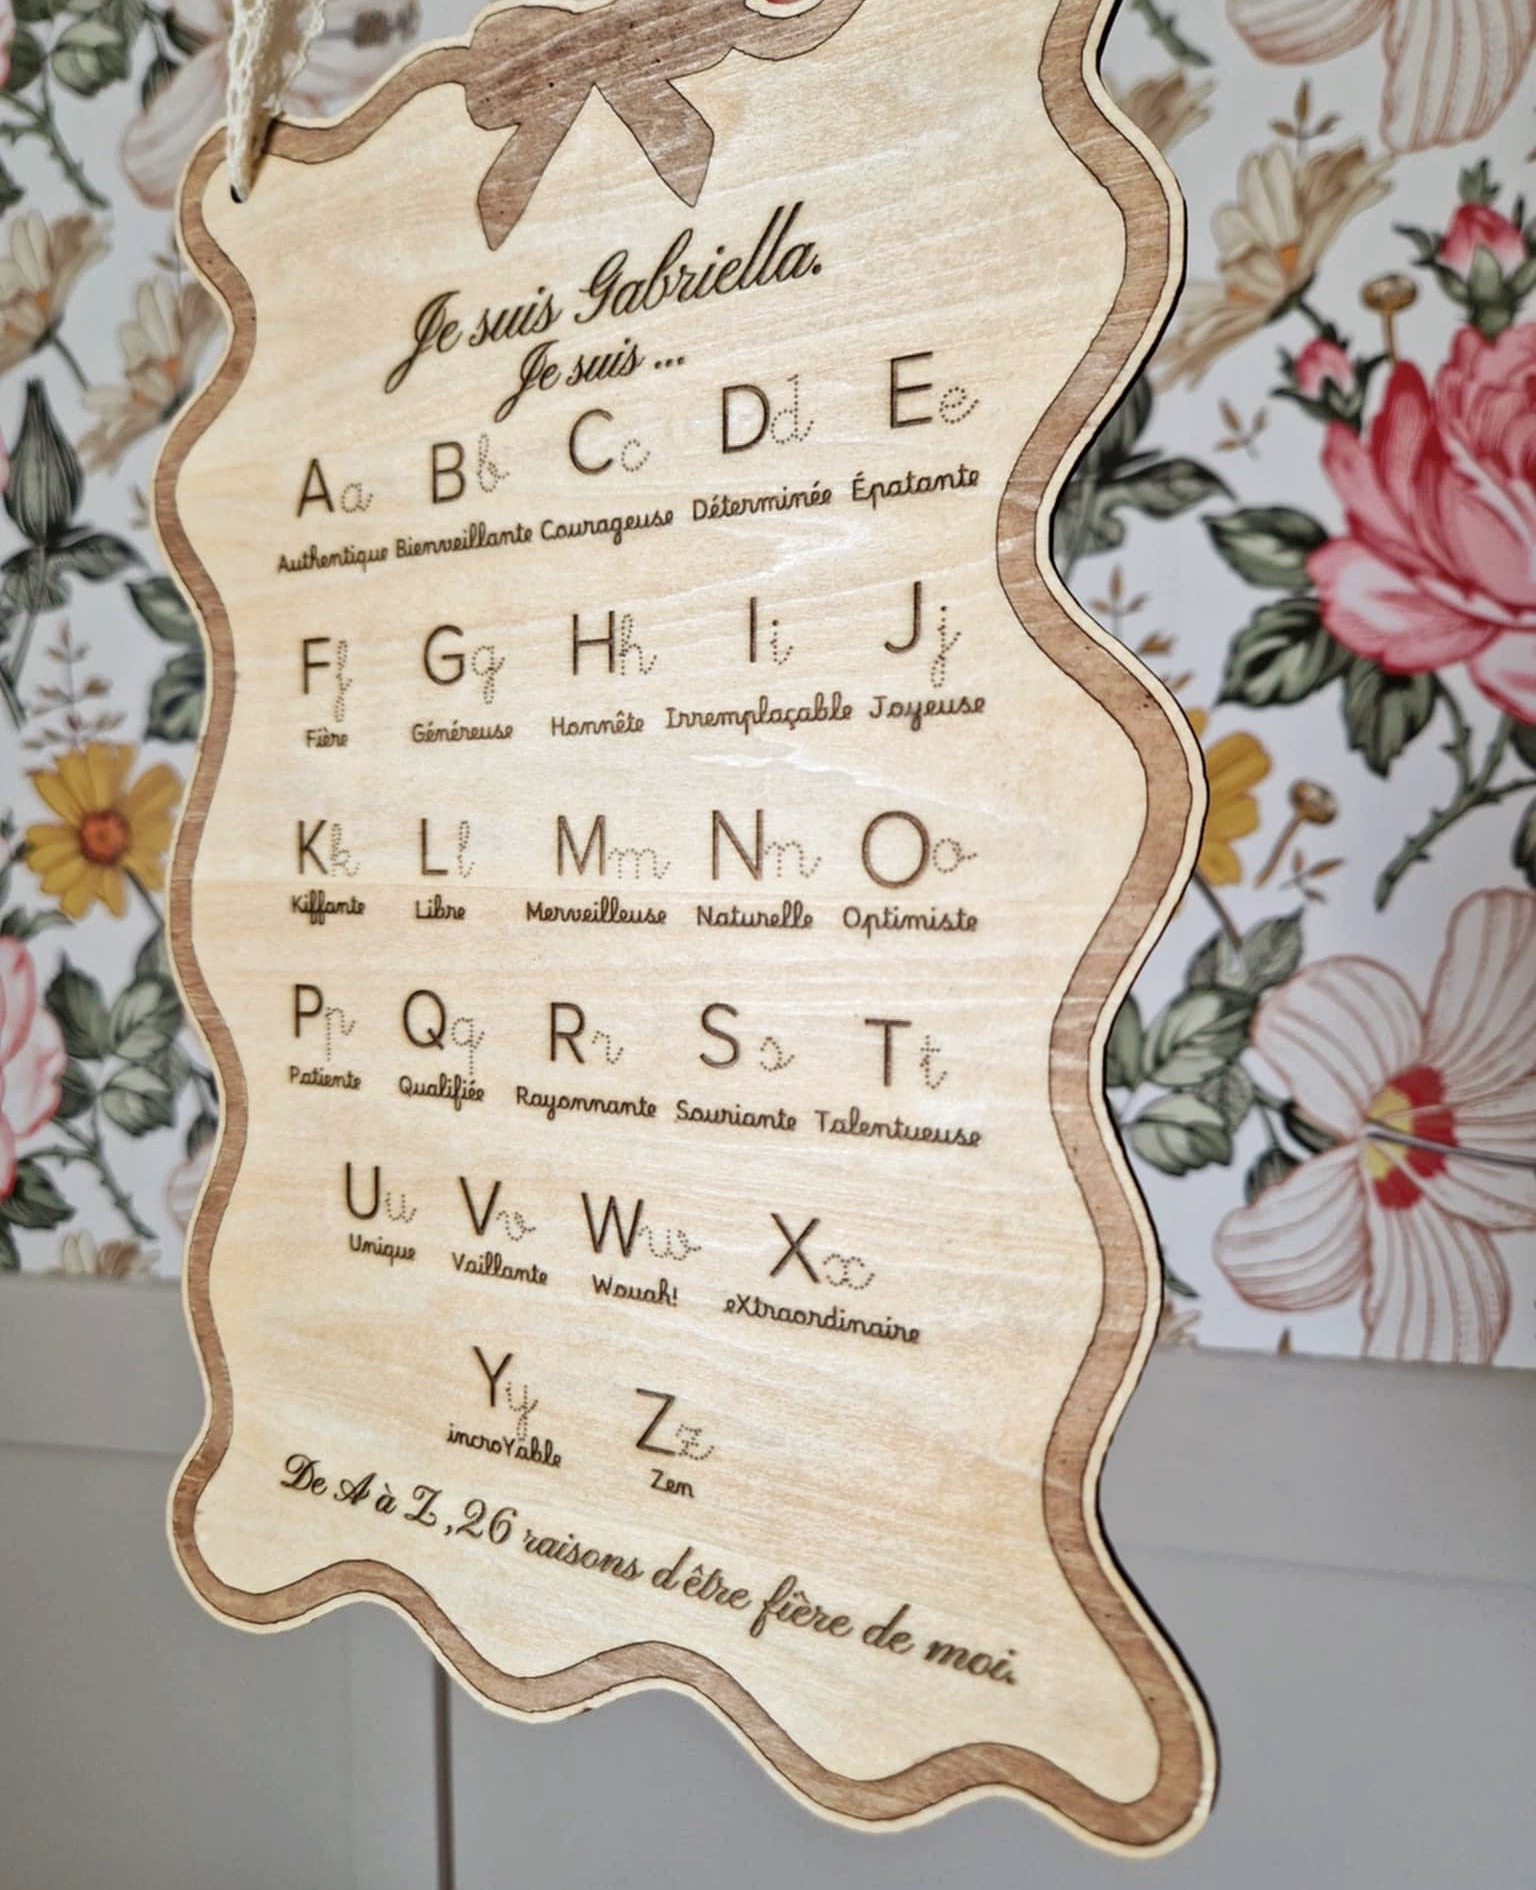 Je suis Gabriella.
Je suis ...
Aa Bb Cc Dd Ee
Authentique Bienveillante Courageuse Déterminée Épatante
Ff Gg Hh Ii Jj
Fière Généreuse Honnête Irremplaçable Joyeuse
Kk Ll Mm Nn Oo
Kiffante Libre Merveilleuse Naturelle Optimiste
Pp Qq Rr Ss Tt
Patiente Qualifiée Rayonnante Souriante Talentueuse
Uu Vv Ww Xx
Unique Vaillante Wouah! eXtraordinaire
Yy Zz
incroYable Zen
De A à Z, 26 raisons d'être fière de moi.